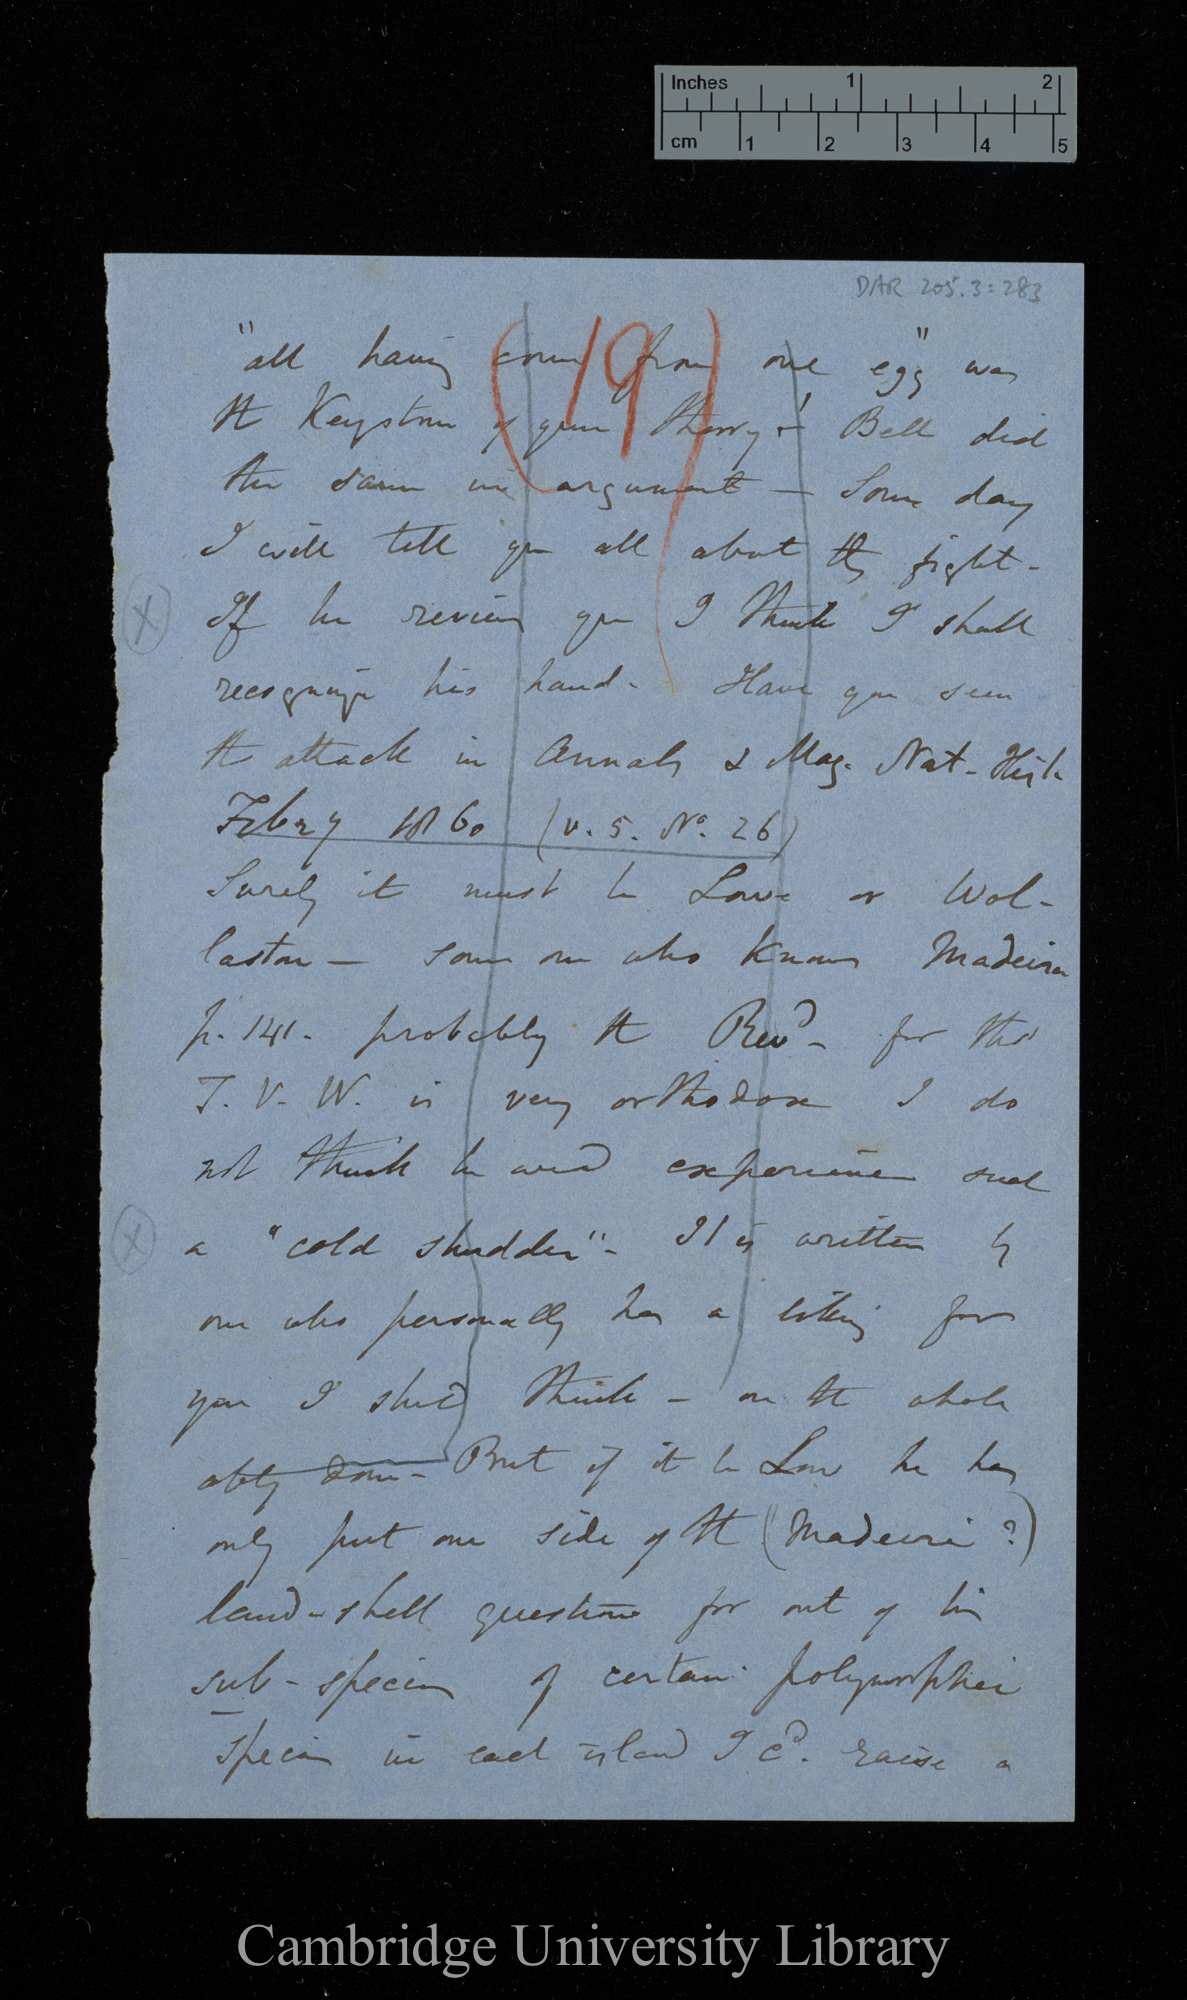 Inches 1 2
cm 1 2 3 4 5
DAR 205.3:283
(19)
"all having come from one egg" was
the Keystone of your theory & Bell did
the same in argument — Some day
I will tell you all about the fight -
X
If he reviews you I think I shall
recognize his hand - Have you seen
the attack in Annals & Mag. Nat. Hist.
Febry 1860 (v. 5. No. 26)
Surely it must be Lowe or Wol-
laston — some one who knows Madeira
p. 141 - probably the Revd - for tho'
T. V. W. is very orthodox I do
not think he wd experience such
X
a "cold shudder" - It is written by
one who personally has a liking for
you I shd think — on the whole
ably done - But if it be Lowe he has
only put one side of the (Madeira?)
land-shell question for out of his
sub-species of certain polymorphic
species in each island I cd. raise a
Cambridge University Library